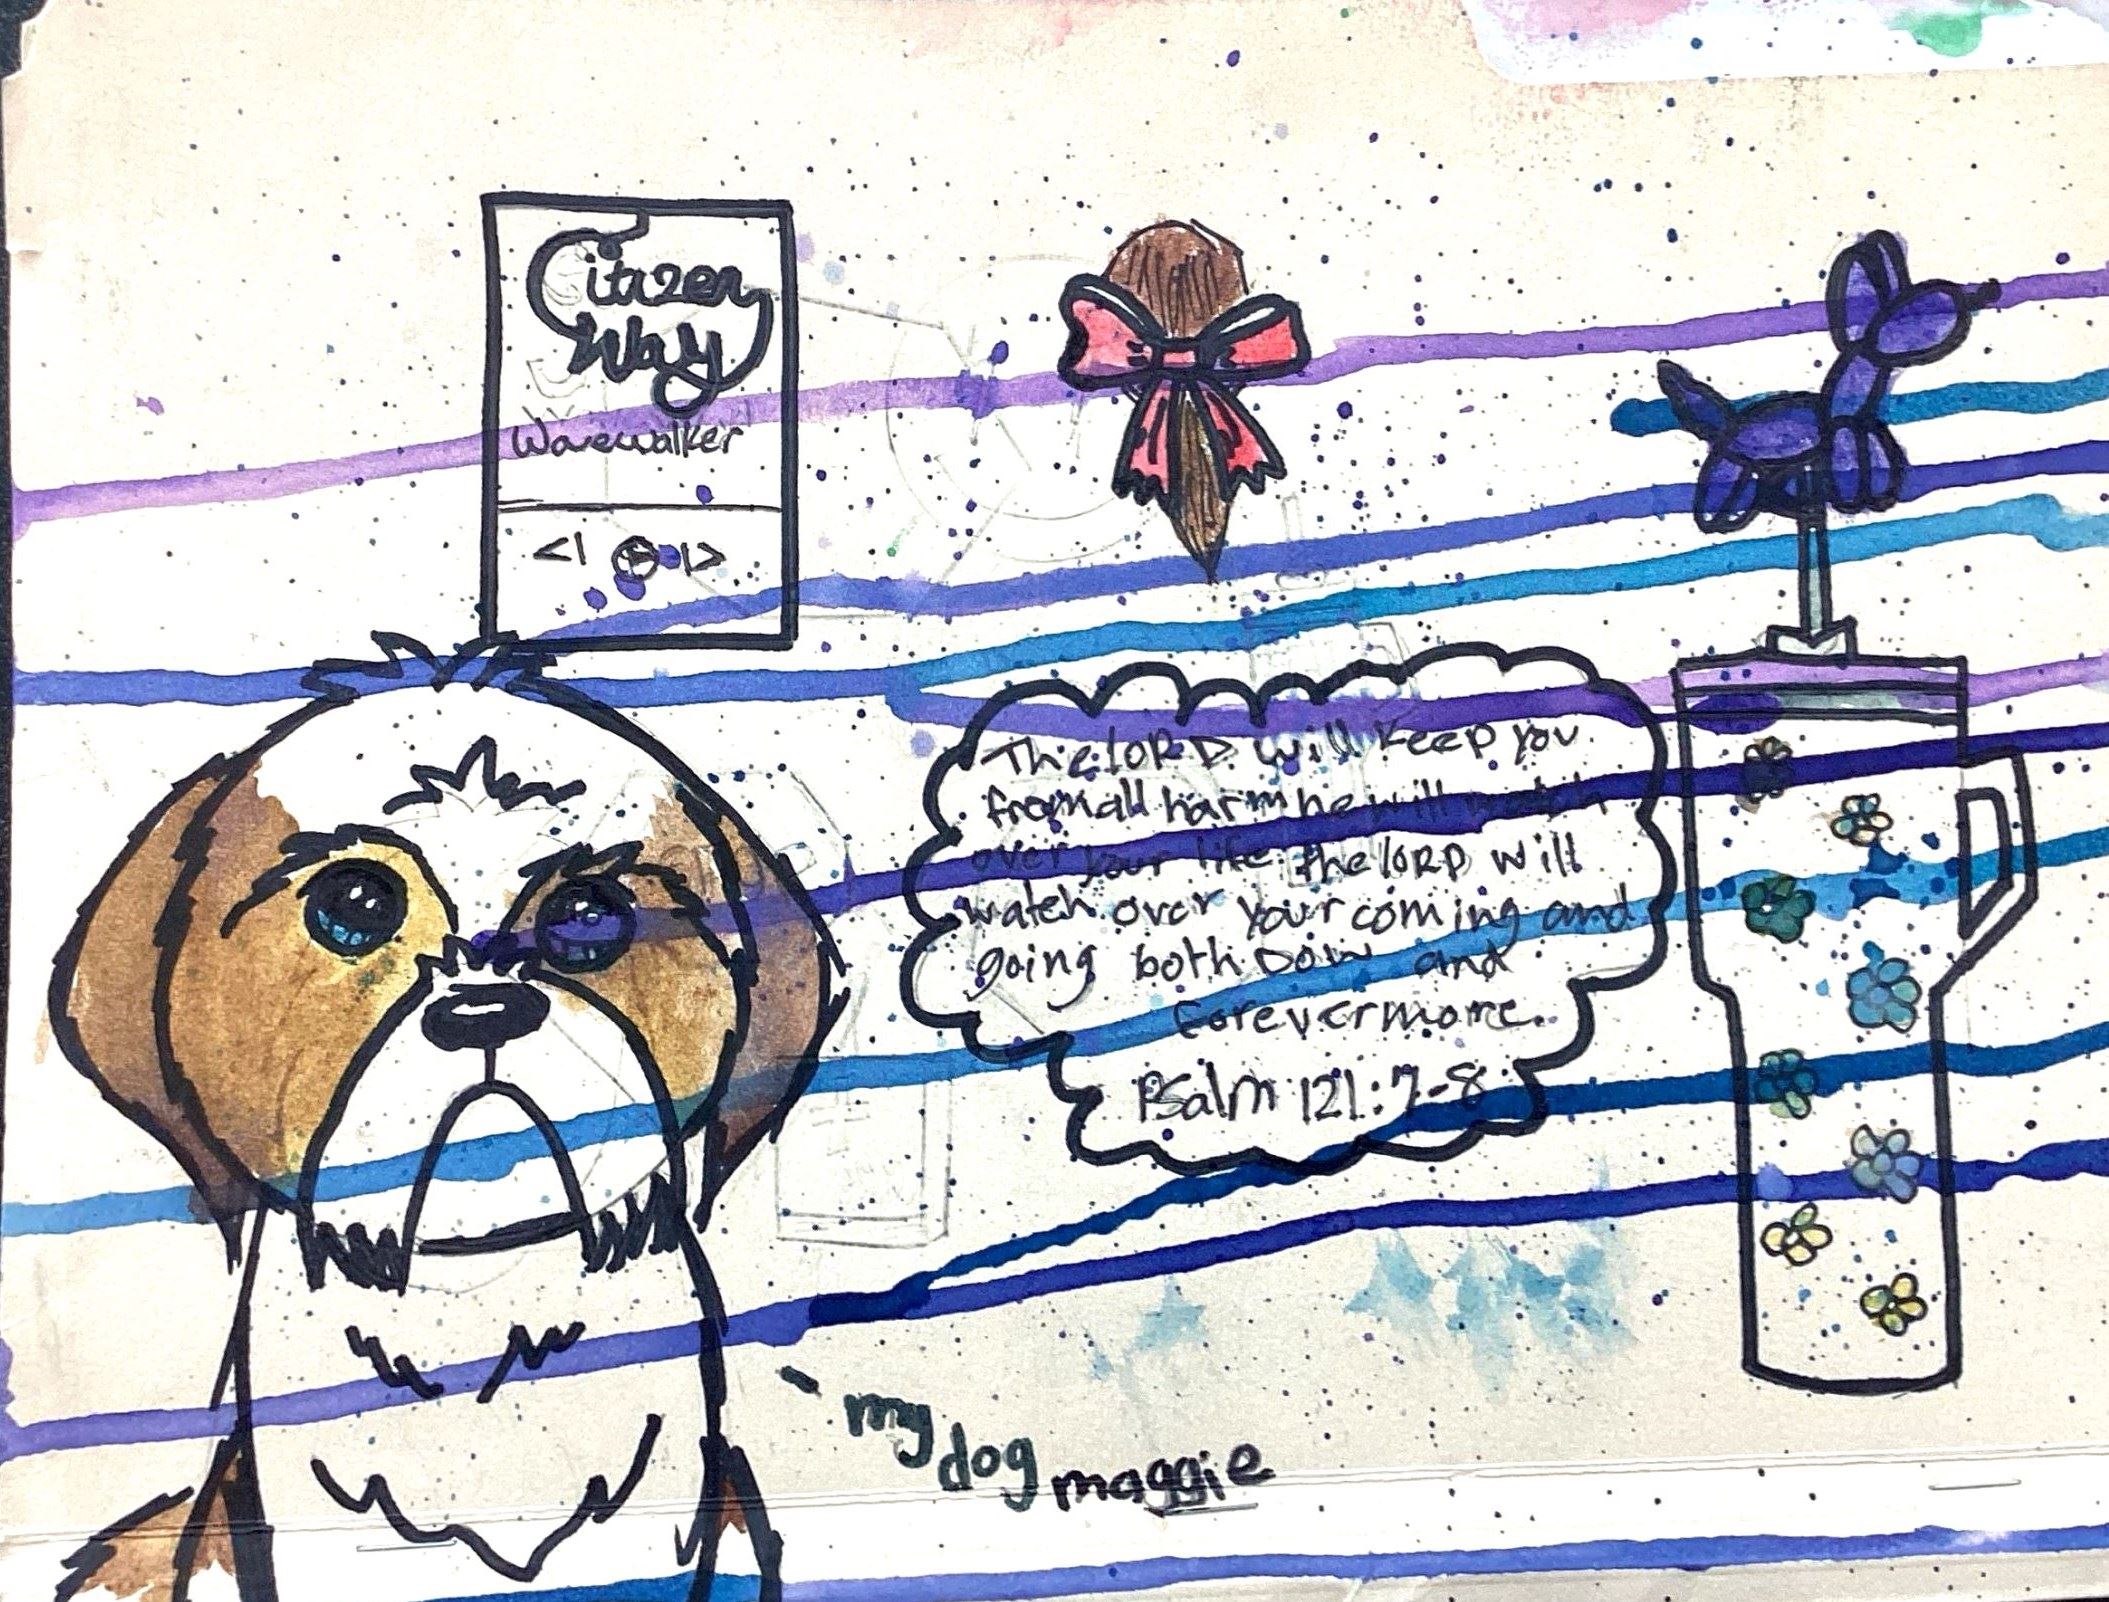 Citizen
Way
Wavewalker
The LORD will keep you
from all harm he will watch
over your life the LORD will
watch over your coming and
going both now and
forevermore.
Psalm 121:7-8
my
dog
maggie